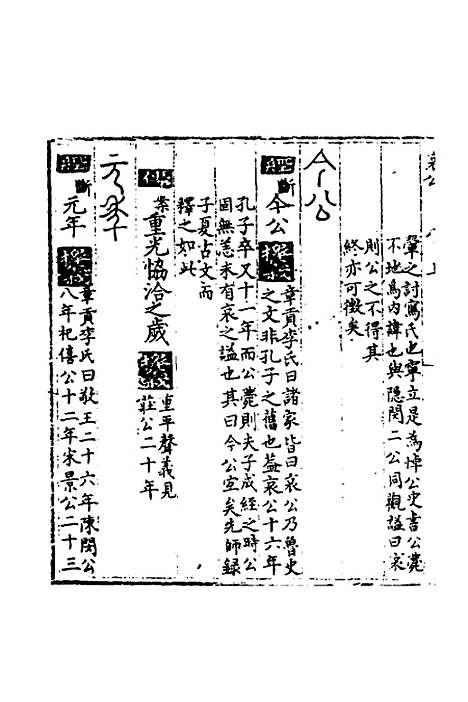 鞏之討寫氏也寧立是為悼公史書公薨
不地爲内諱也與隱閔二公同觀諡曰哀
則公之不得其
終亦可徵矣
今公
經 斷 今公 章貢李氏曰諸家皆曰哀公乃魯史
之文非孔子之舊也葢哀公十六年
孔子卒又十一年而公薨則夫子成經之時公
固無恙未有哀之謚也其曰今公宜矣先師録
子夏占文而
釋之如此
傳 案 重光協洽之歲 重平聲義見
莊公二十年
元年
經 斷 元年 章貢李氏曰敬王二十六年陳閔公
八年杞僖公十二年宋景公二十三